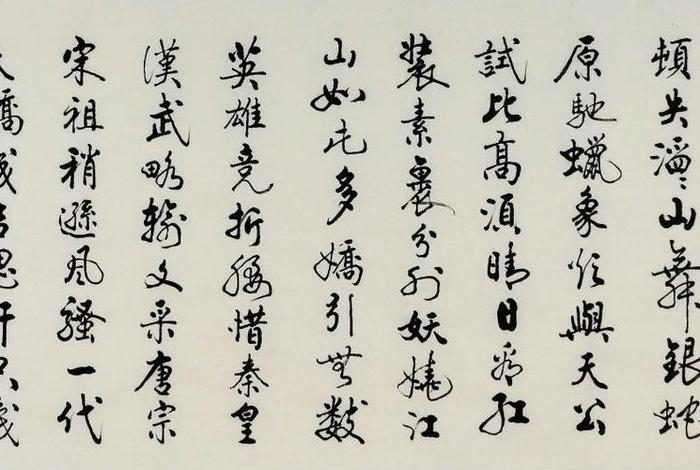 頓失滔〻山舞銀蛇
原馳蠟象欲與天公
試比高須晴日看紅
裝素裹分外妖嬈江
山如此多嬌引無數
英雄竞折腰惜秦皇
漢武略輸文采唐宗
宋祖稍遜風騷一代
天驕成吉思汗只識